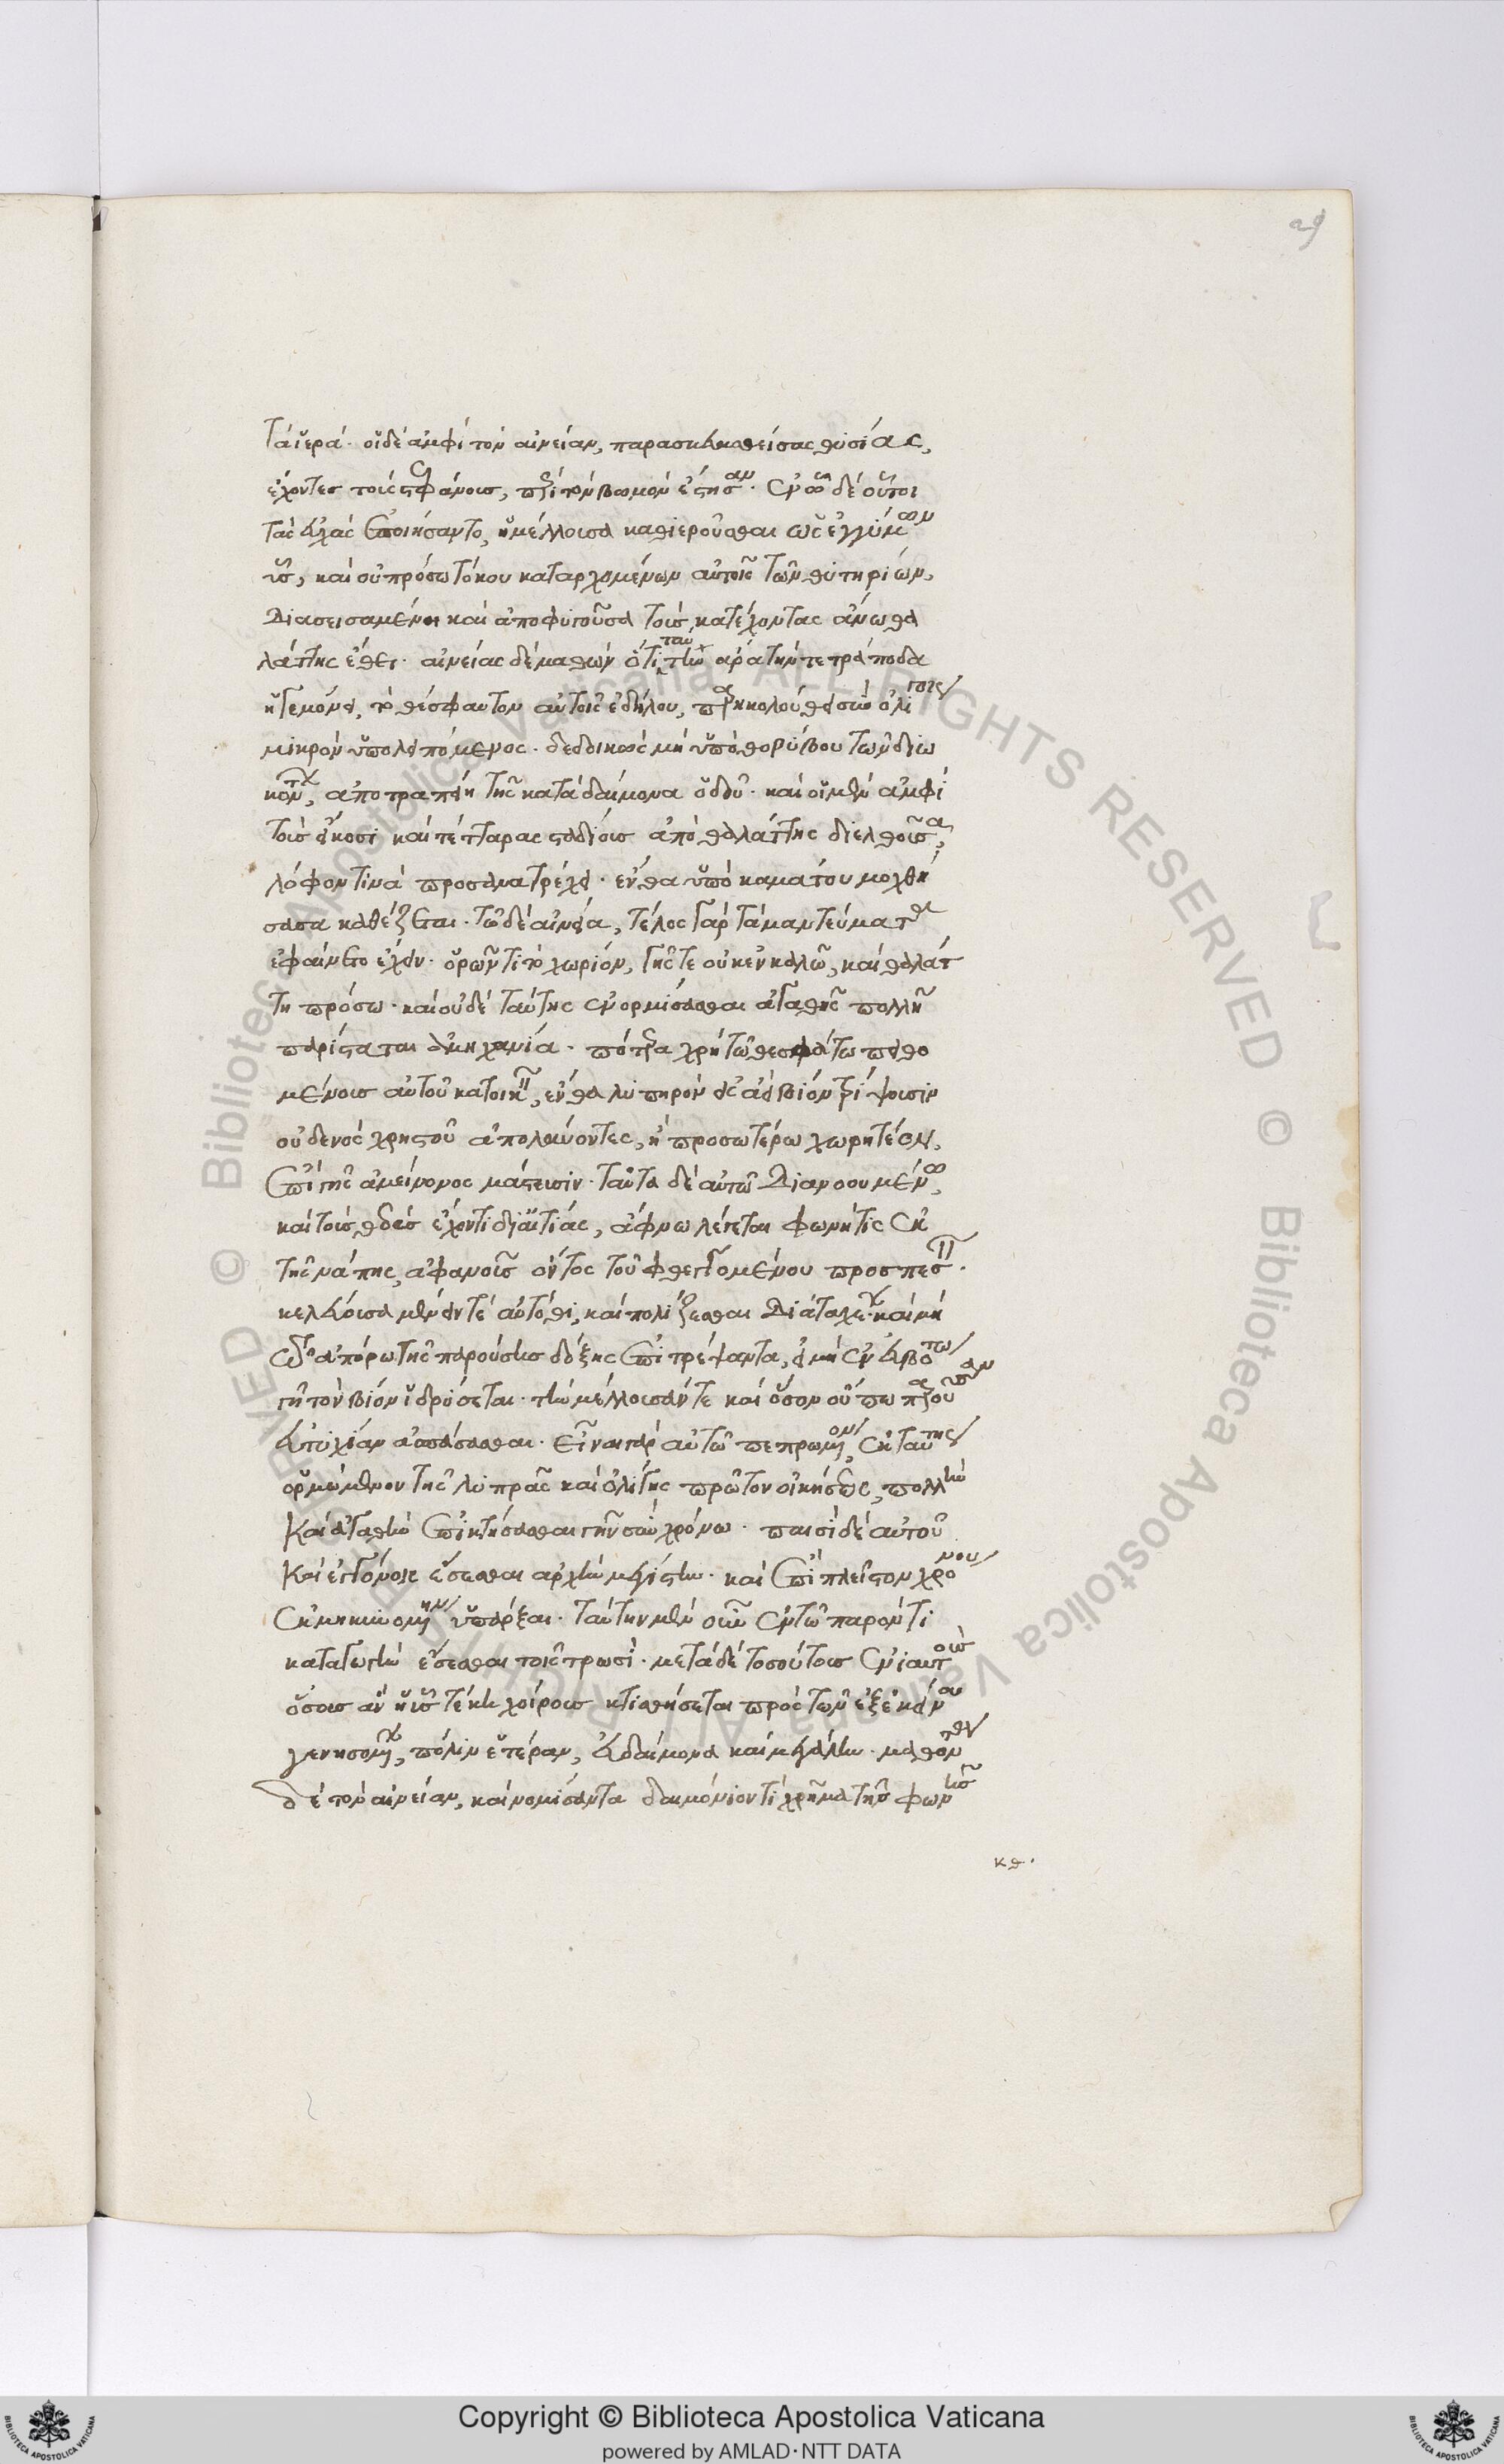 29
τὰ ἱερά. οἱ δὲ ἀμφὶ τὸν αἰνείαν, παρασκευασθείσας θυσίας,
ἔχοντες τοὺς στεφάνους, περὶ τὸν βωμὸν ἔστησαν. ἐν ᾧ δὲ οὗτοι
τὰς εὐχὰς ἐποιήσαντο, ἡ μέλλουσα καθιεροῦσθαι ὡς ἐγκύμων
ὗς, καὶ οὐ πρόσω τόκου καταρχομένων αὐτοῖς τῶν θυτηρίων,
διασεισαμένη καὶ ἀποφυγοῦσα τοὺς κατέχοντας ἄνω θα
λάττης ἔθει. αἰνείας δὲ μαθὼν ὅτι ταύτην ἄρα τὴν τετράποδα
ἡγεμόνα, τὸ θέσφατον αὐτοῖς ἐδήλου, παρηκολούθει σὺν ὀλίγοις
μικρὸν ὑπολειπόμενος. δεδοικὼς μὴ ὑπὸ θορύβου τῶν διω
κόντων, ἀποτραπείη τῆς κατὰ δαίμονα ὁδοῦ. καὶ οἱ μὲν ἀμφὶ
τοὺς εἴκοσι καὶ τέτταρας σταδίους ἀπὸ θαλάττης διελθοῦσα,
λόφον τινὰ προσανατρέχει. ἔνθα ὑπὸ καμάτου μοχθή
σασα καθέζεται. τῷ δὲ αἰνείᾳ, τέλος γὰρ τὰ μαντεύματα
ἐφαίνετο ἔχειν. ὁρῶντι τὸ χωρίον, γῆς τε οὐκ ἐν καλῷ, καὶ θαλάτ
τῃ πρόσω. καὶ οὐδὲ ταύτης ἐνορμίσασθαι ἀγαθῆς πολλὴ
παρίσταται ἀμηχανία. πότερα χρὴ τῷ θεσφάτῳ πειθο
μένους αὐτοῦ κατοικεῖν, ἔνθα λυπηρὸν ἀεὶ βίον τρίψουσιν
οὐδενὸς χρηστοῦ ἀπολαύοντες, ἢ προσωτέρω χωρητέον,
ἐπὶ γῆς ἀμείνονος μάστευσιν. ταῦτα δὲ αὐτῷ διανοουμένῳ,
καὶ τοὺς θεοὺς ἔχοντι δι' αἰτίας, ἄφνω λέγεται φωνή τις ἐκ
τῆς νάπης, ἀφανοῦς ὄντος τοῦ φθεγγομένου προσπεσεῖν.
κελεύουσα μένειν τε αὐτόθι, καὶ πολίζεσθαι διὰ ταχέων. καὶ μὴ
τῷ ἀπόρῳ τῆς παρούσης δόξης ἐπιτρέψαντα, εἰ μὴ ἐν εὐβότῳ
γῇ τὸν βίον ἱδρύσεται. τὴν μέλλουσάν τε καὶ ὅσον οὔπω παροῦσαν
εὐτυχίαν ἀπώσασθαι. εἶναι γὰρ αὐτῷ πεπρωμένον, ἐκ ταύτης
ὁρμώμενον τῆς λυπρᾶς καὶ ὀλίγης πρῶτον οἰκήσεως, πολλὴν
καὶ ἀγαθὴν ἐπικτήσασθαι γῆν σὺν χρόνῳ. παισὶ δὲ αὐτοῦ
καὶ ἐγγόνοις ἔσεσθαι ἀρχὴν μεγίστην. καὶ ἐπὶ πλεῖστον χρόνου
ἐκμηκυνομένην ὑπάρξαι. ταύτην μὲν οὖν ἐν τῷ παρόντι
καταγωγὴν ἔσεσθαι τοῖς τρωσί. μετὰ δὲ τοσούτους ἐνιαυτοὺς
ὅσους ἂν ἡ ὗς τέκῃ χοίρους κτισθήσεται πρὸς τῶν ἐξ ἐκείνου
γενησομένων, πόλιν ἑτέραν, εὐδαίμονα καὶ μεγάλην. μαθόντα
δὲ τὸν αἰνείαν, καὶ νομίσαντα δαιμόνιόν τι χρῆμα τῆς φωνῆς
κθ.